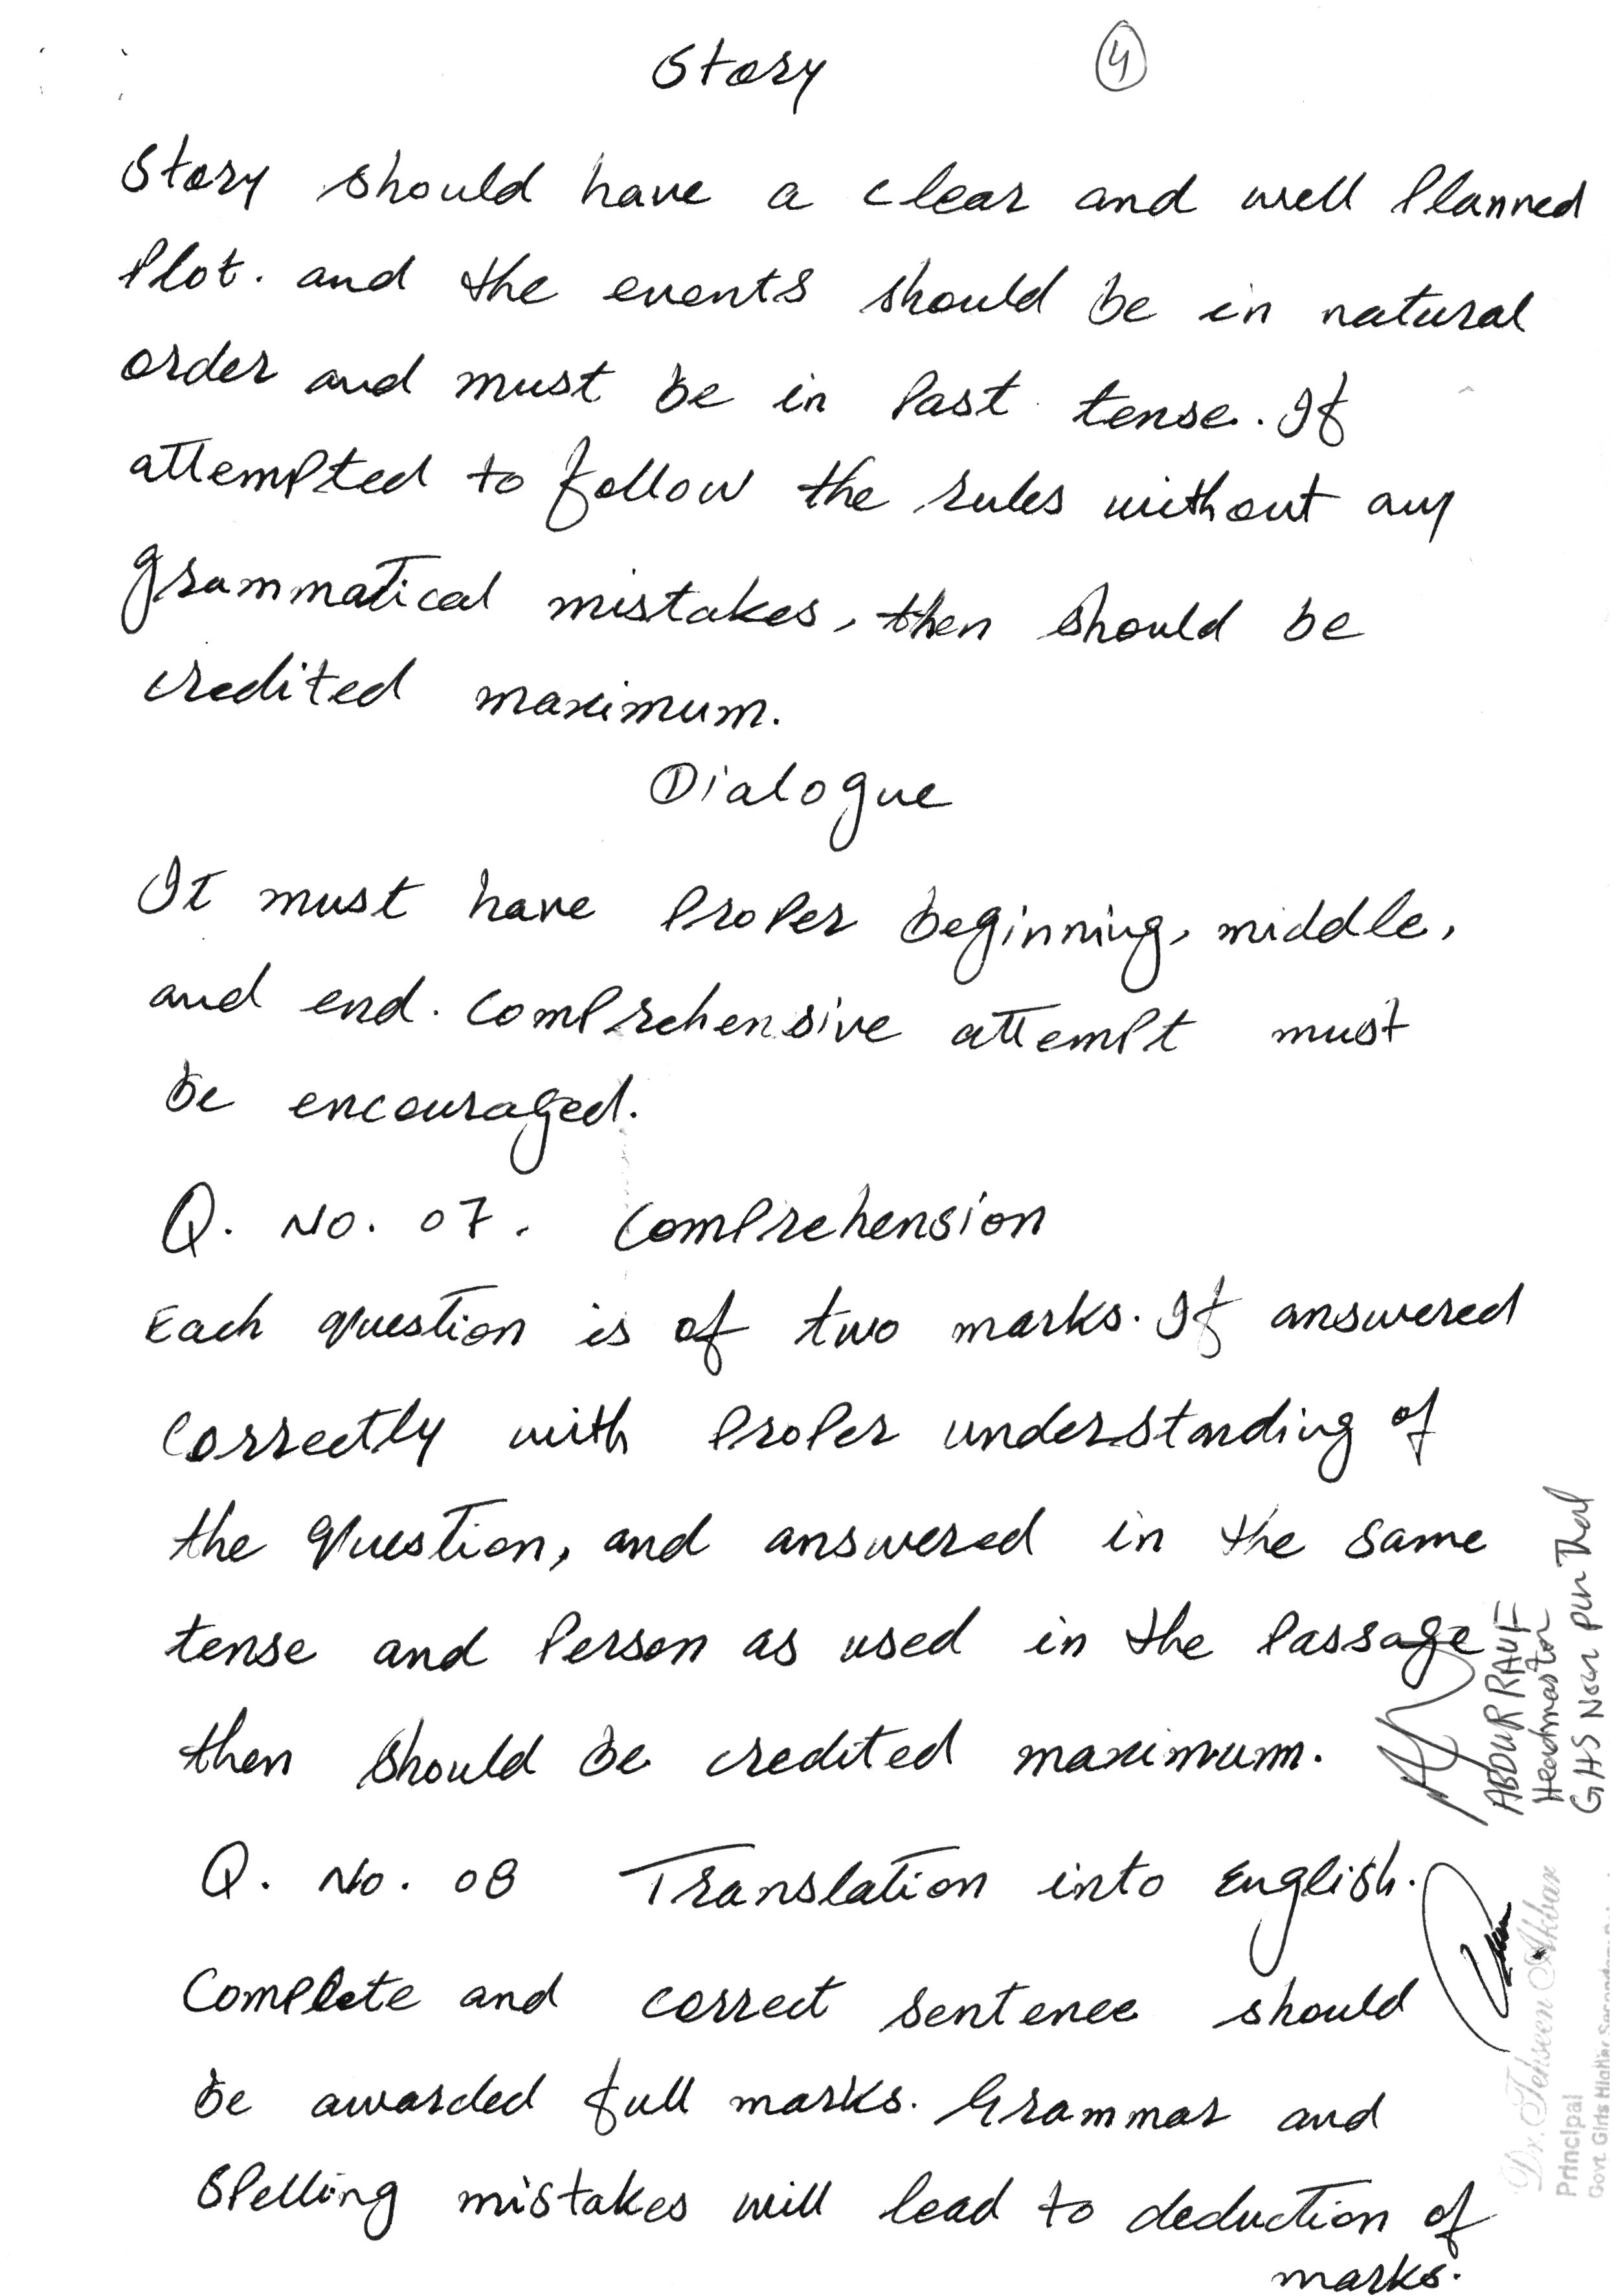 Story
4
Story should have a clear and well Planned
Plot. and the events should be in natural
order and must be in Past tense. If
attempted to follow the rules without any
grammatical mistakes, then should be
credited maximum.
Dialogue
It must have Proper beginning, middle,
and end. Comprehensive attempt must
be encouraged.
Q. No. 07. Comprehension
Each question is of two marks. If answered
Correctly with Proper understanding of
the question, and answered in the same
tense and Person as used in the Passage
then should be credited maximum.
Q. No. 08 Translation into English.
Complete and correct sentence should
be awarded full marks. Grammar and
Spelling mistakes will lead to deduction of
marks.
ABDUR RAUF
Headmaster
GHS
Dr. Tehseen Akbar
Principal
Govt Girls Higher Secondary